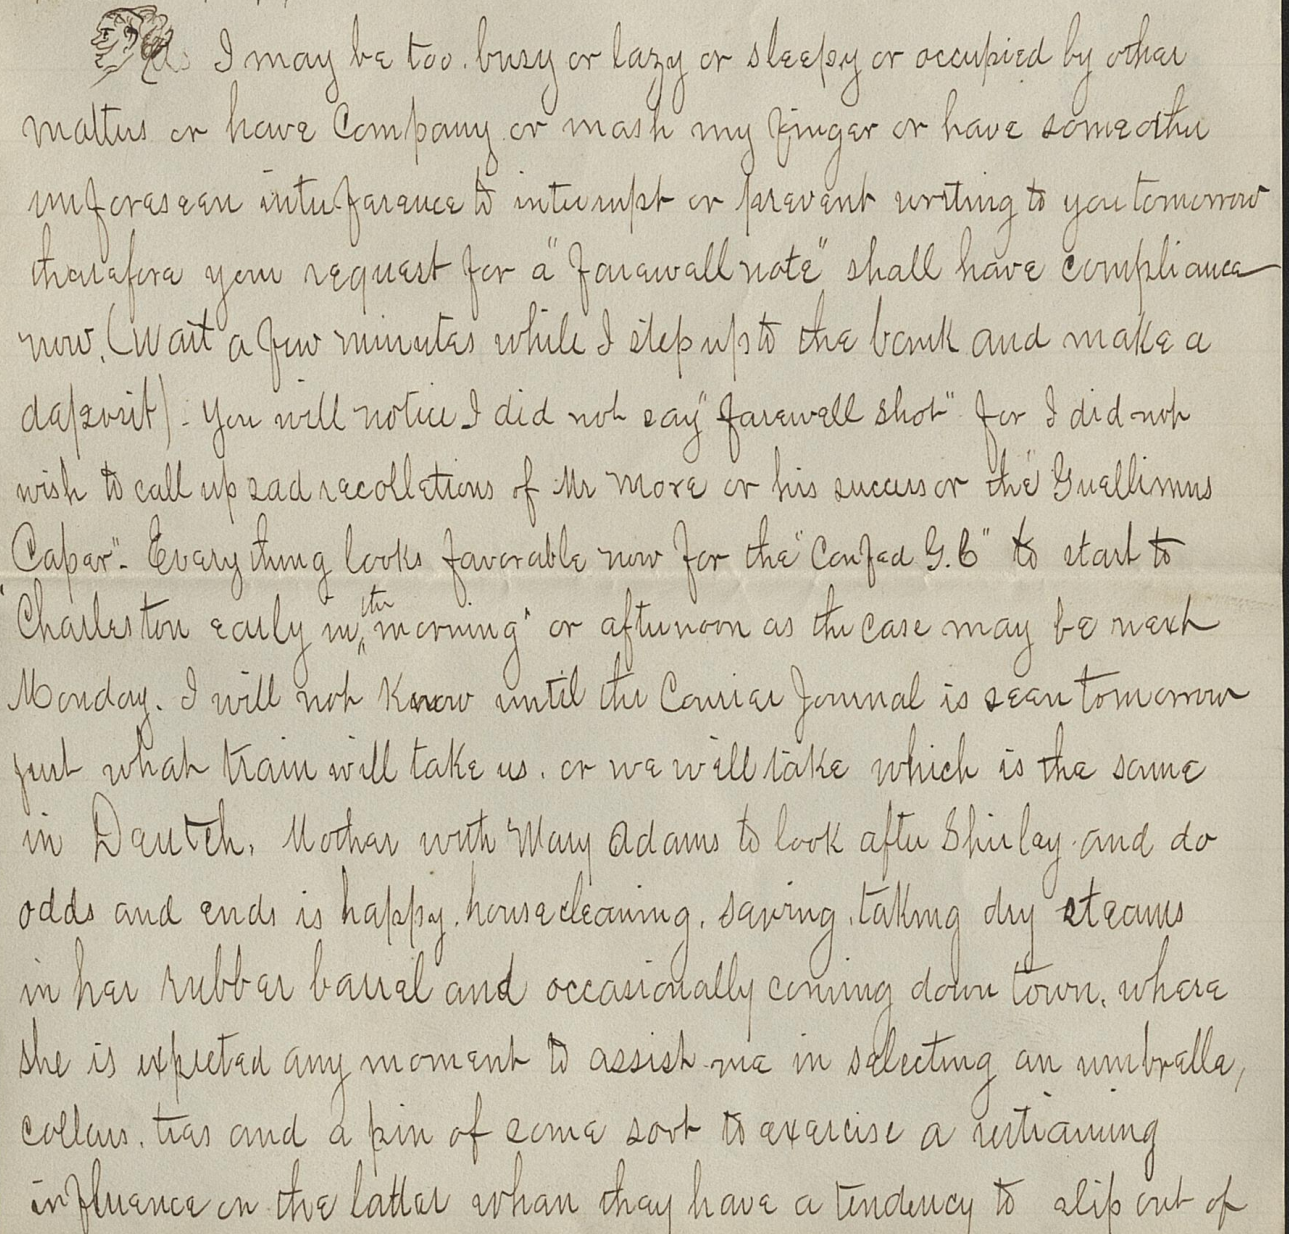 As I may be too busy or lazy or sleepy or occupied by other
matters or have Company or mash my finger or have someother
unforeseen interference to interrupt or prevent writing to you tomorrow
therefore your request for a "farewell note" shall have compliance
now. (Wait a few minutes while I step up to the bank and make a
deposit). You will notice I did not say "farewell shot" for I did not
wish to call up sad recolletions of Mr More or his successor the "Guellimus
Caper". Everything looks favorable now for the "Confed G.C" to start to
"Charleston early in the morning" or afternoon as the case may be next
Monday. I will not Know until the Courier Journal is seen tomorrow
just what train will take us, or we will take which is the same
in Deutch. Mother with Mary Adams to look after Shirley and do
odds and ends is happy, housecleaning, sewing, taking dry steams
in her rubber barrel and occasionally coming down town, where
she is expected any moment to assist me in selecting an umbrella,
collars, ties and a pin of some sort to exercise a restraining
influence on the latter when they have a tendency to slip out of